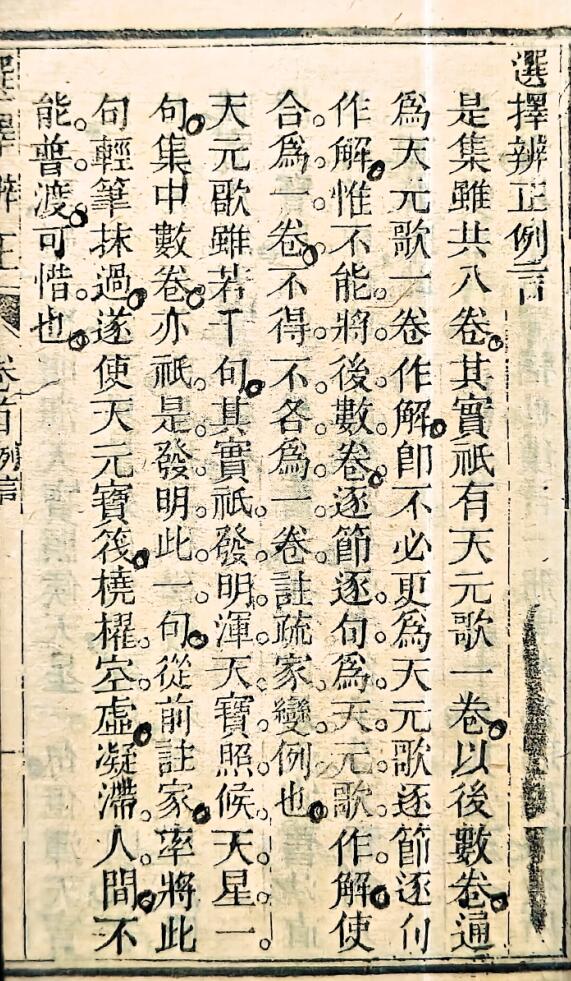 選擇辨正例言
是集雖共八卷其實祇有天元歌一卷以後數卷通
爲天元歌一卷作解卽不必更爲天元歌逐節逐句
作解惟不能將後數卷逐節逐句爲天元歌作解使
合爲一卷不得不各爲一卷註疏家變例也
天元歌雖若干句其實祇發明渾天寶照候天星一
句集中數卷亦祇是發明此一句從前註家率將此
句輕筆抹過遂使天元寶筏橈櫂空虛凝滯人間不
能普渡可惜也
選擇辨正 卷首 例言